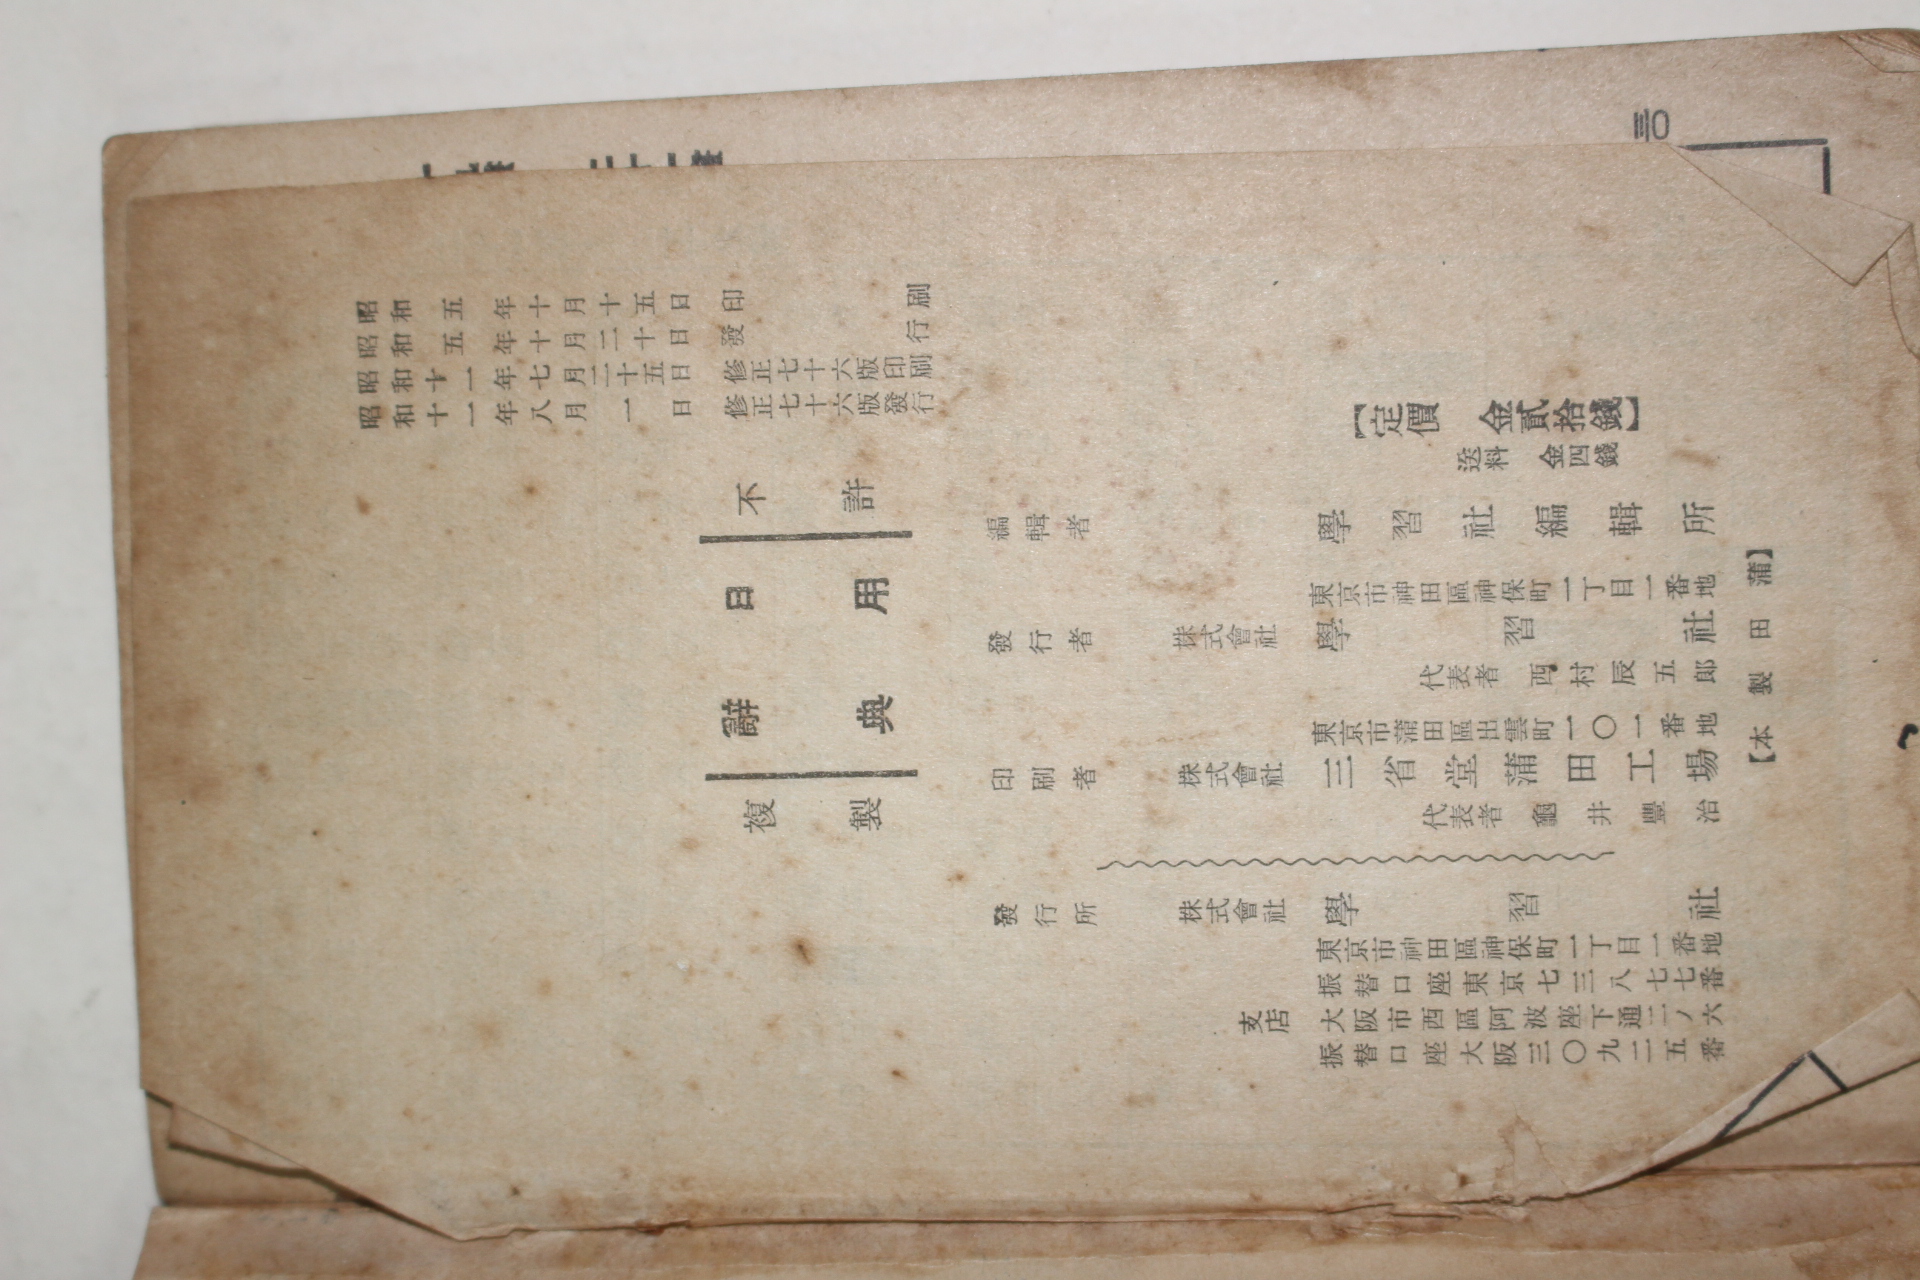 昭和五年十月十五日印刷
昭和五年十月二十日發行
昭和十一年七月二十五日修正七十六版印刷
昭和十一年八月一日修正七十六版發行
【定價 金貳拾錢】
送料 金四錢
不許
日用
辭典
複製
編輯者 學習社編輯所
東京市神田區神保町一丁目一番地
發行者 株式會社 學習社
代表者 西村辰五郎
東京市蒲田區出雲町一〇一番地
印刷者 株式會社 三省堂蒲田工場
代表者 龜井豐治
【本製田蒲】
發行所 株式會社 學習社
東京市神田區神保町一丁目一番地
振替口座東京七三八七七番
支店 大阪市西區阿波座下通二ノ六
振替口座大阪三〇九二五番